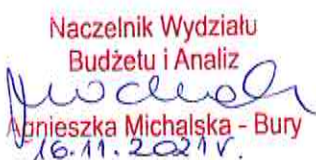 Naczelnik Wydziału
Budżetu i Analiz
Agnieszka Michalska - Bury
16.11.2021r.